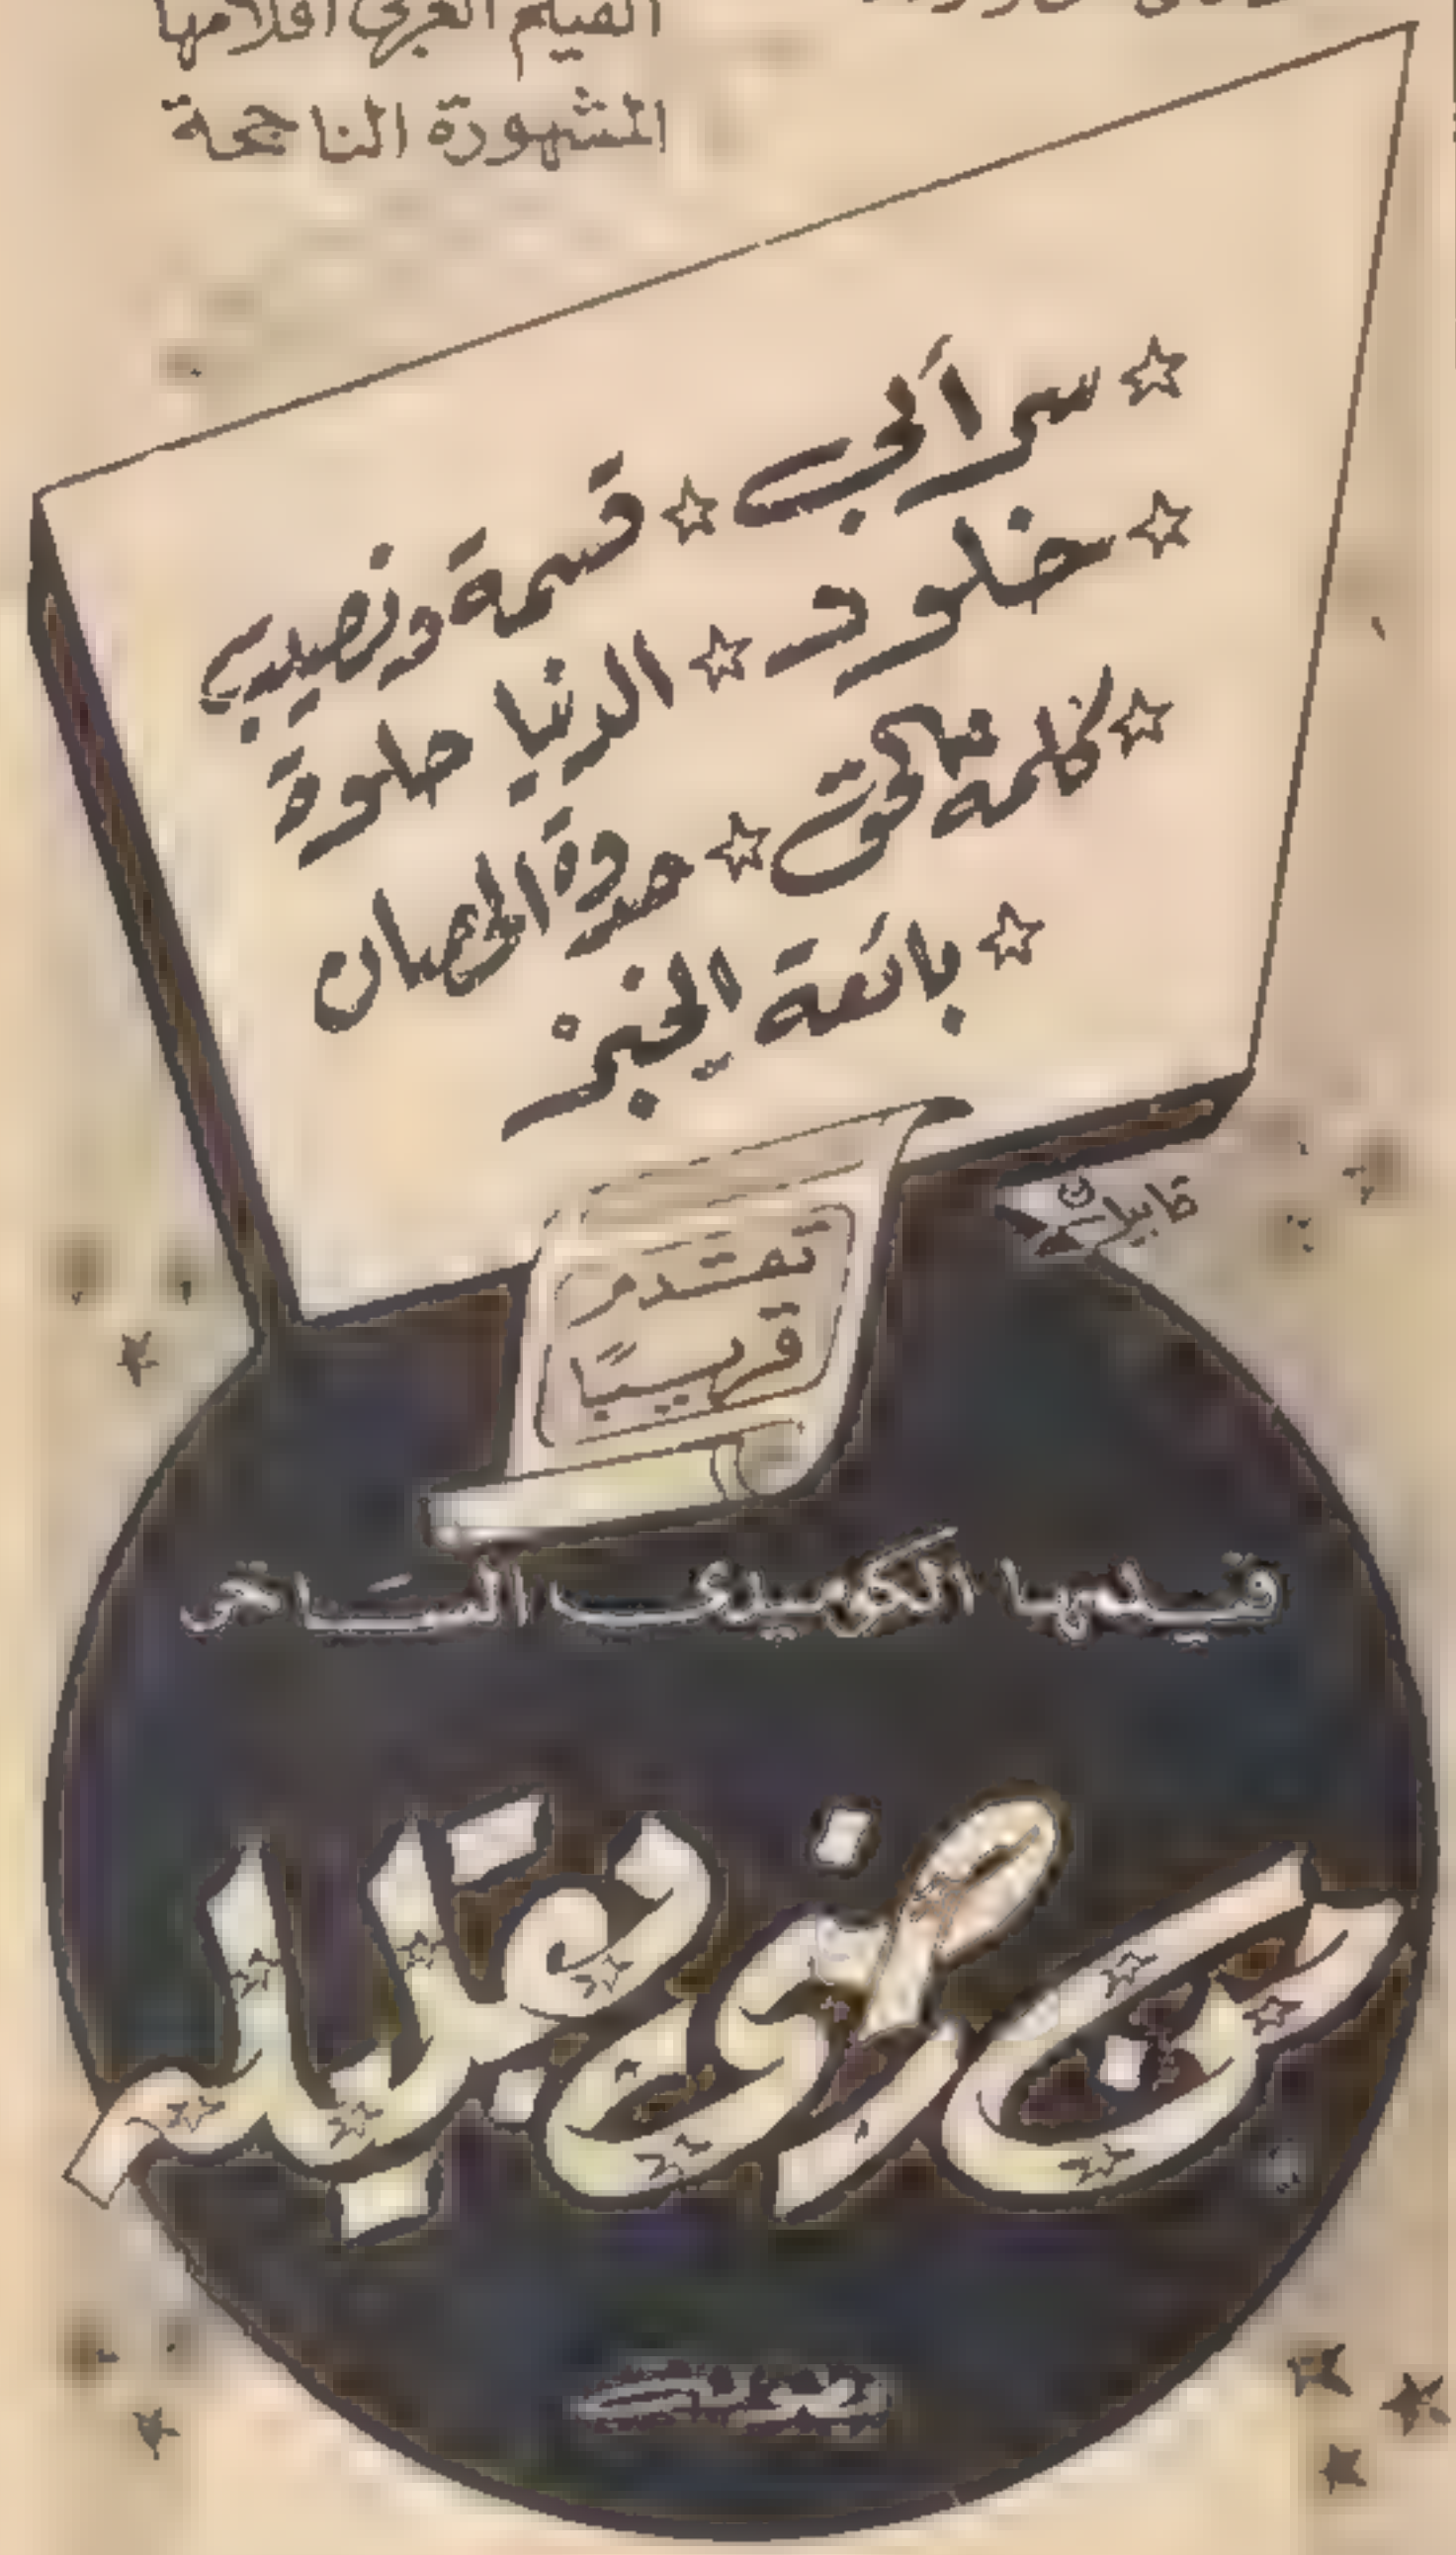 الفيلم العربى أفلامها
المشهورة الناجحة
☆ سر أبى ☆ قسمة ونصيب
☆ خلود ☆ الدنيا حلوة
☆ كلمة الحق ☆ حدوة الحصان
☆ بائعة الخبز
تقدم
قريبًا
فيلمها الكوميدى الساخر
من رضى بقليله